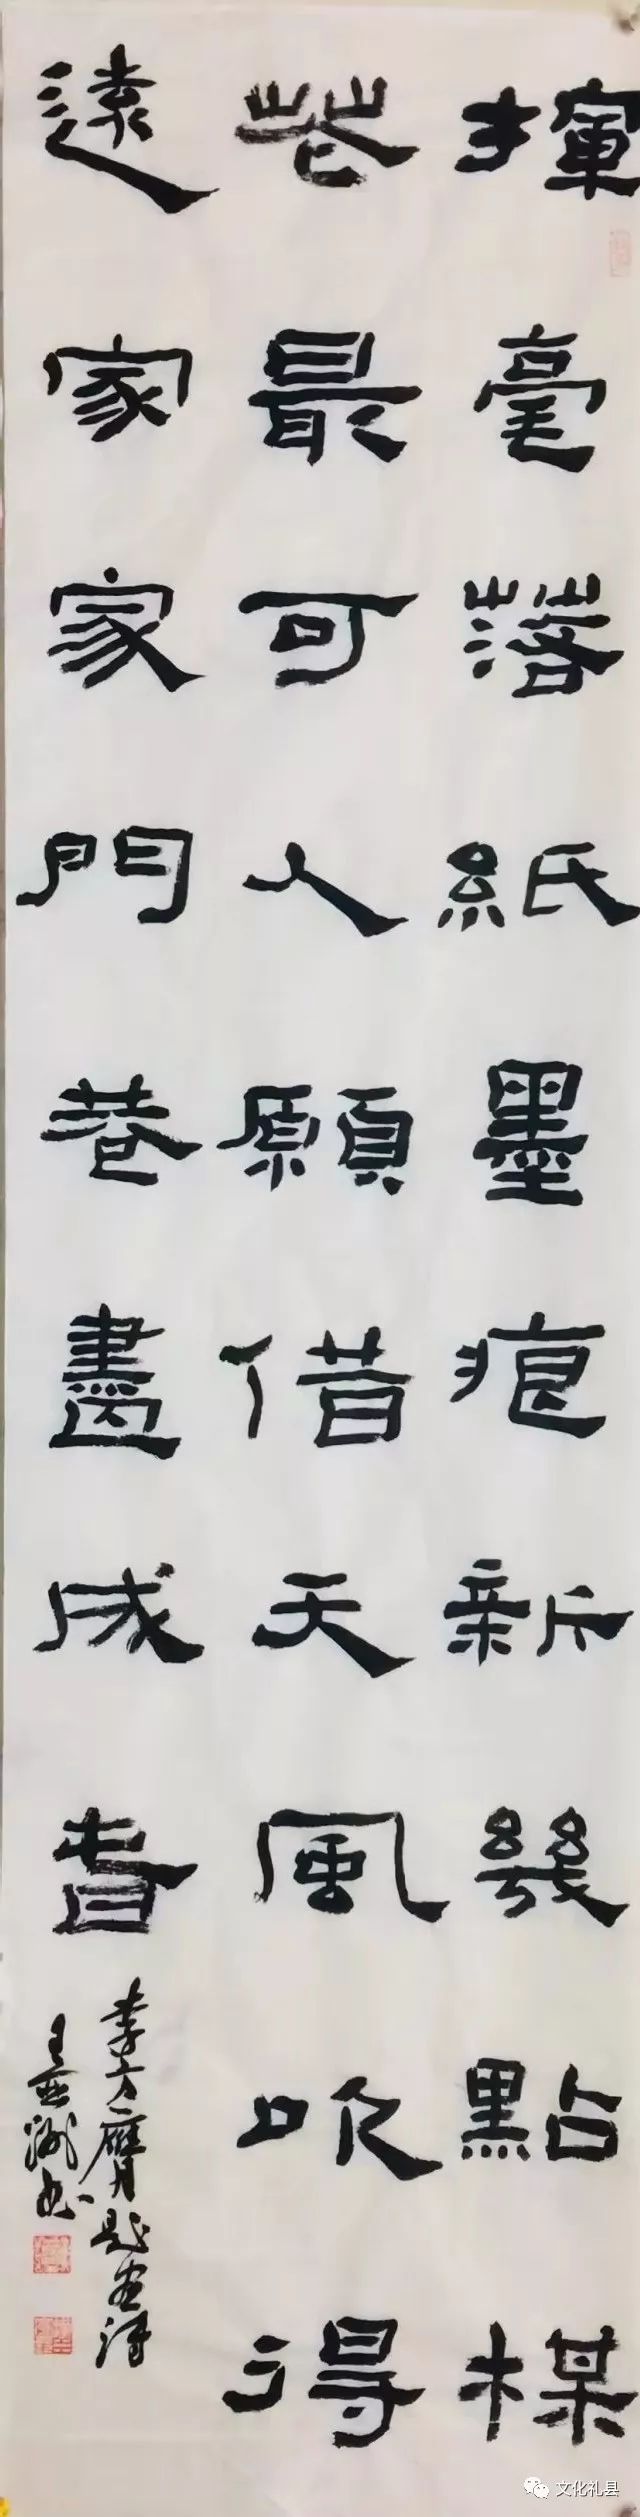 揮毫落紙墨痕新幾點楳
花最可人願借天風吹得
遠家家門巷畫成旾
李方膺題畫詩
王亞洲书
文化礼县